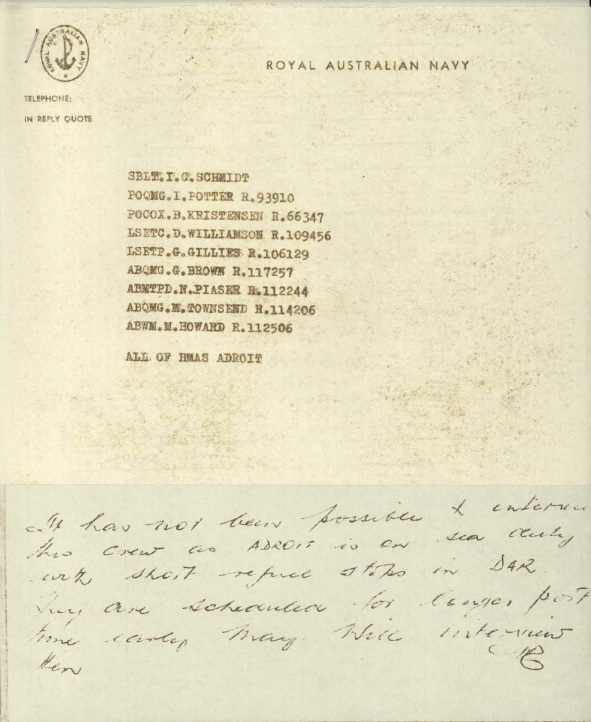 ROYAL AUSTRALIAN NAVY
ROYAL AUSTRALIAN NAVY
TELEPHONE:
IN REPLY QUOTE
SBLT.I.G.SCHMIDT
POQMG.I.POTTER R.93910
POCOX.B.KRISTENSEN R.66347
LSETC.D.WILLIAMSON R.109456
LSETP.G.GILLIES R.106129
ABQMG.G.BROWN R.117257
ABMTPD.N.PIASER R.112244
ABQMG.M.TOWNSEND R.114206
ABWM.M.HOWARD R.112506
ALL OF HMAS ADROIT
It has not been possible to
this crew as ADROIT is on sea duty
with short refuel stops in DAR
They are scheduled for longer port
time early May. Will interview
then